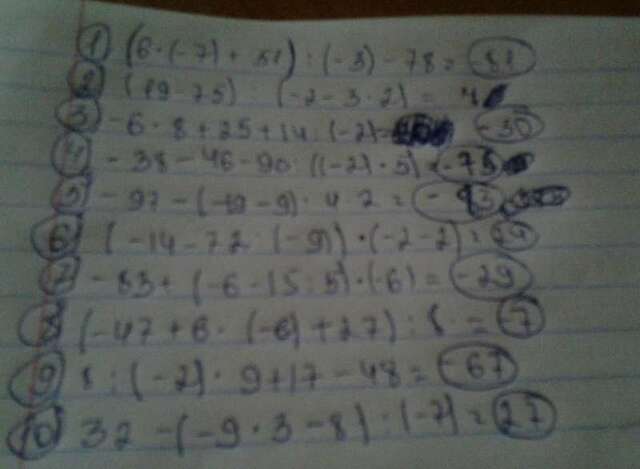 1 (6·(-7)+51):(-3)-78=-81
2 75):(-2-3·2)=
3 -6·8+25+14:(-2)= -30
4 -38-46-90:((-2)·5)=-75
5 -97-( -9)·4:2=
6 (-14-72:(-9))·(-2-2)=24
7 -83+(-6-15:5)·(-6)=-29
8 (-47+6·(-6)+27):8=-7
9 8:(-2)·9+17-48=-67
10 32-(-9·3-8):(-7)=27